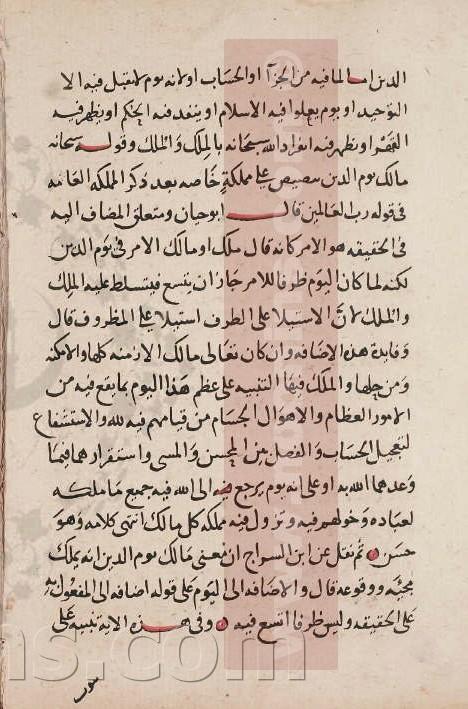 الدين اما لما فيه من الجزآ او الحساب او لانه يوم لا يقبل فيه الا
التوحيد او يوم يعلوا فيه الاسلام او ينفد فيه الحكم او يظهر فيه
القهر او يظهر فيه انفراد الله سبحانه بالملك والملك وقوله سبحانه
مالك يوم الدين تنصيص على مملكة خاصه بعد ذكر المملكه العامه
فى قوله رب العالمين قال ابو حيان ومتعلق المضاف اليه
فى الحقيقه هو الامر كانه قال ملك او مالك الامر فى يوم الدين
لكنه لما كان اليوم ظرفا للامر جاز ان يتسع فيتسلط عليه الملك
والملك لان الاستيلا على الظرف استيلا على المظروف قال
وفايدة هذه الاضافه وان كان تعالى مالك الازمنه كلها والامكنه
ومن حلها والملك فيها التنبيه على عظم هذا اليوم بما يقع فيه من
الامور العظام والاهوال الجسام من قيامهم فيه لله والاستشفاع
لتعجيل الحساب والفصل بين المحسن والمسى واستقرارهما فيما
وعدهما الله به او على انه يوم يرجع فيه الى الله فيه جميع ما ملكه
لعباده وخولهم فيه وتزول فيه مملكه كل مالك انتهى كلامه وهو
حسن ثم نقل عن ابن السراج ان معنى مالك يوم الدين انه يملك
مجيئه ووقوعه قال والاضافه الى اليوم على قوله اضافه الى المفعول به
على الحقيقه وليس ظرفا اتسع فيه وفى هذه الايه تنبيه على
ns.com